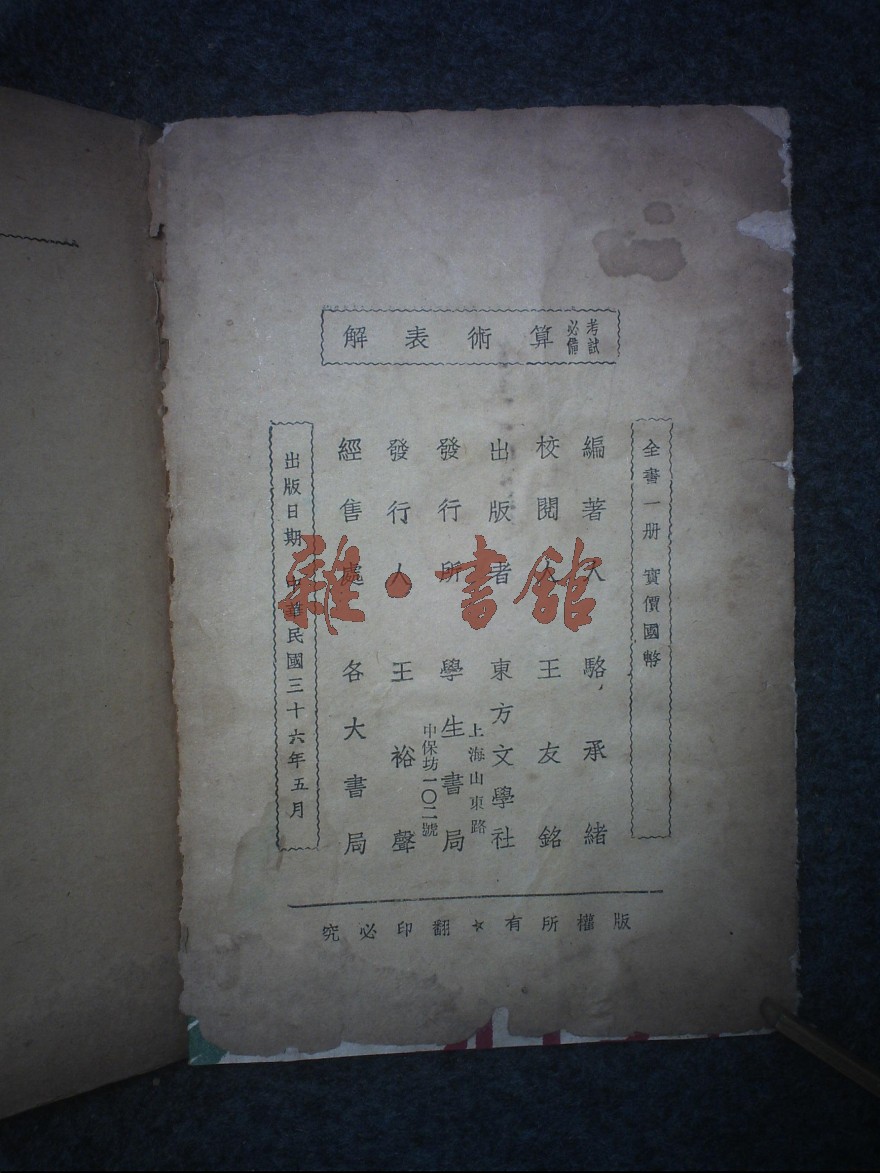 考試必備 算術表解
全書一册 實價國幣
編著人 駱承緒
校閱人 王友銘
出版者 東方文學社
發行所 學生書局
上海山東路
中保坊一〇二號
發行人 王裕聲
經售處 各大書局
出版日期 中華民國三十六年五月
版權所有☆翻印必究
雜·書館